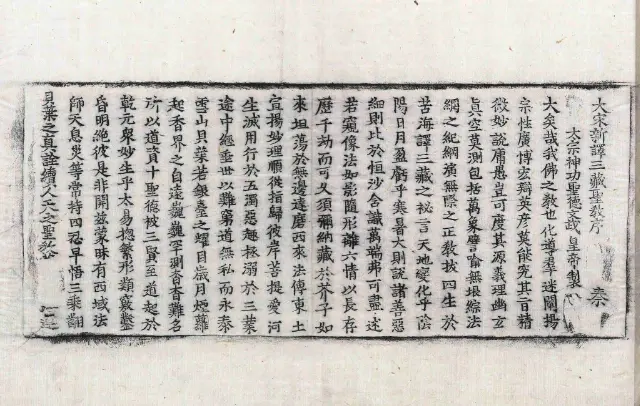 大宋新譯三藏聖教序
太宗神功聖德文武皇帝製
秦
大矣哉我佛之教也化導羣迷闡揚
宗性廣博宏辯英彥莫能究其旨精
微妙說庸愚豈可度其源義理幽玄
真空莫測包括萬象譬喻無垠綜法
網之紀綱演無際之正教拔四生於
苦海譯三藏之祕言天地變化乎陰
陽日月盈虧乎寒暑大則說諸善惡
細則比於恒沙含識萬端弗可盡述
若窺像法如影隨形離六情以長存
歷千劫而可久須彌納藏於芥子如
來坦蕩於無邊達磨西來法傳東土
宣揚妙理順從指歸彼岸菩提愛河
生滅用行於五濁惡趣拯溺於三業
途中經垂世以難窮道無私而永泰
雪山貝葉若銀臺之耀目歲月煙蘿
起香界之自遠巍巍罕測杳杳難名
所以道資十聖德被三賢至道起於
乾元眾妙生乎太易揔繁形類竅鑿
昏明絕彼是非開茲蒙昧有西域法
師天息災等常持四忍早悟三乘翻
貝葉之真詮續人天之聖教